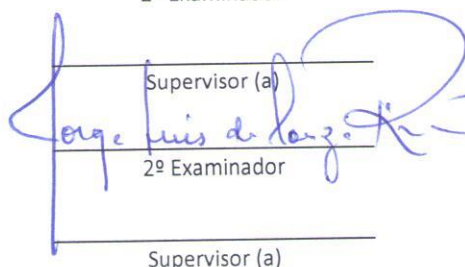 Supervisor (a)
Jorge Luis de
2º Examinador
Supervisor (a)